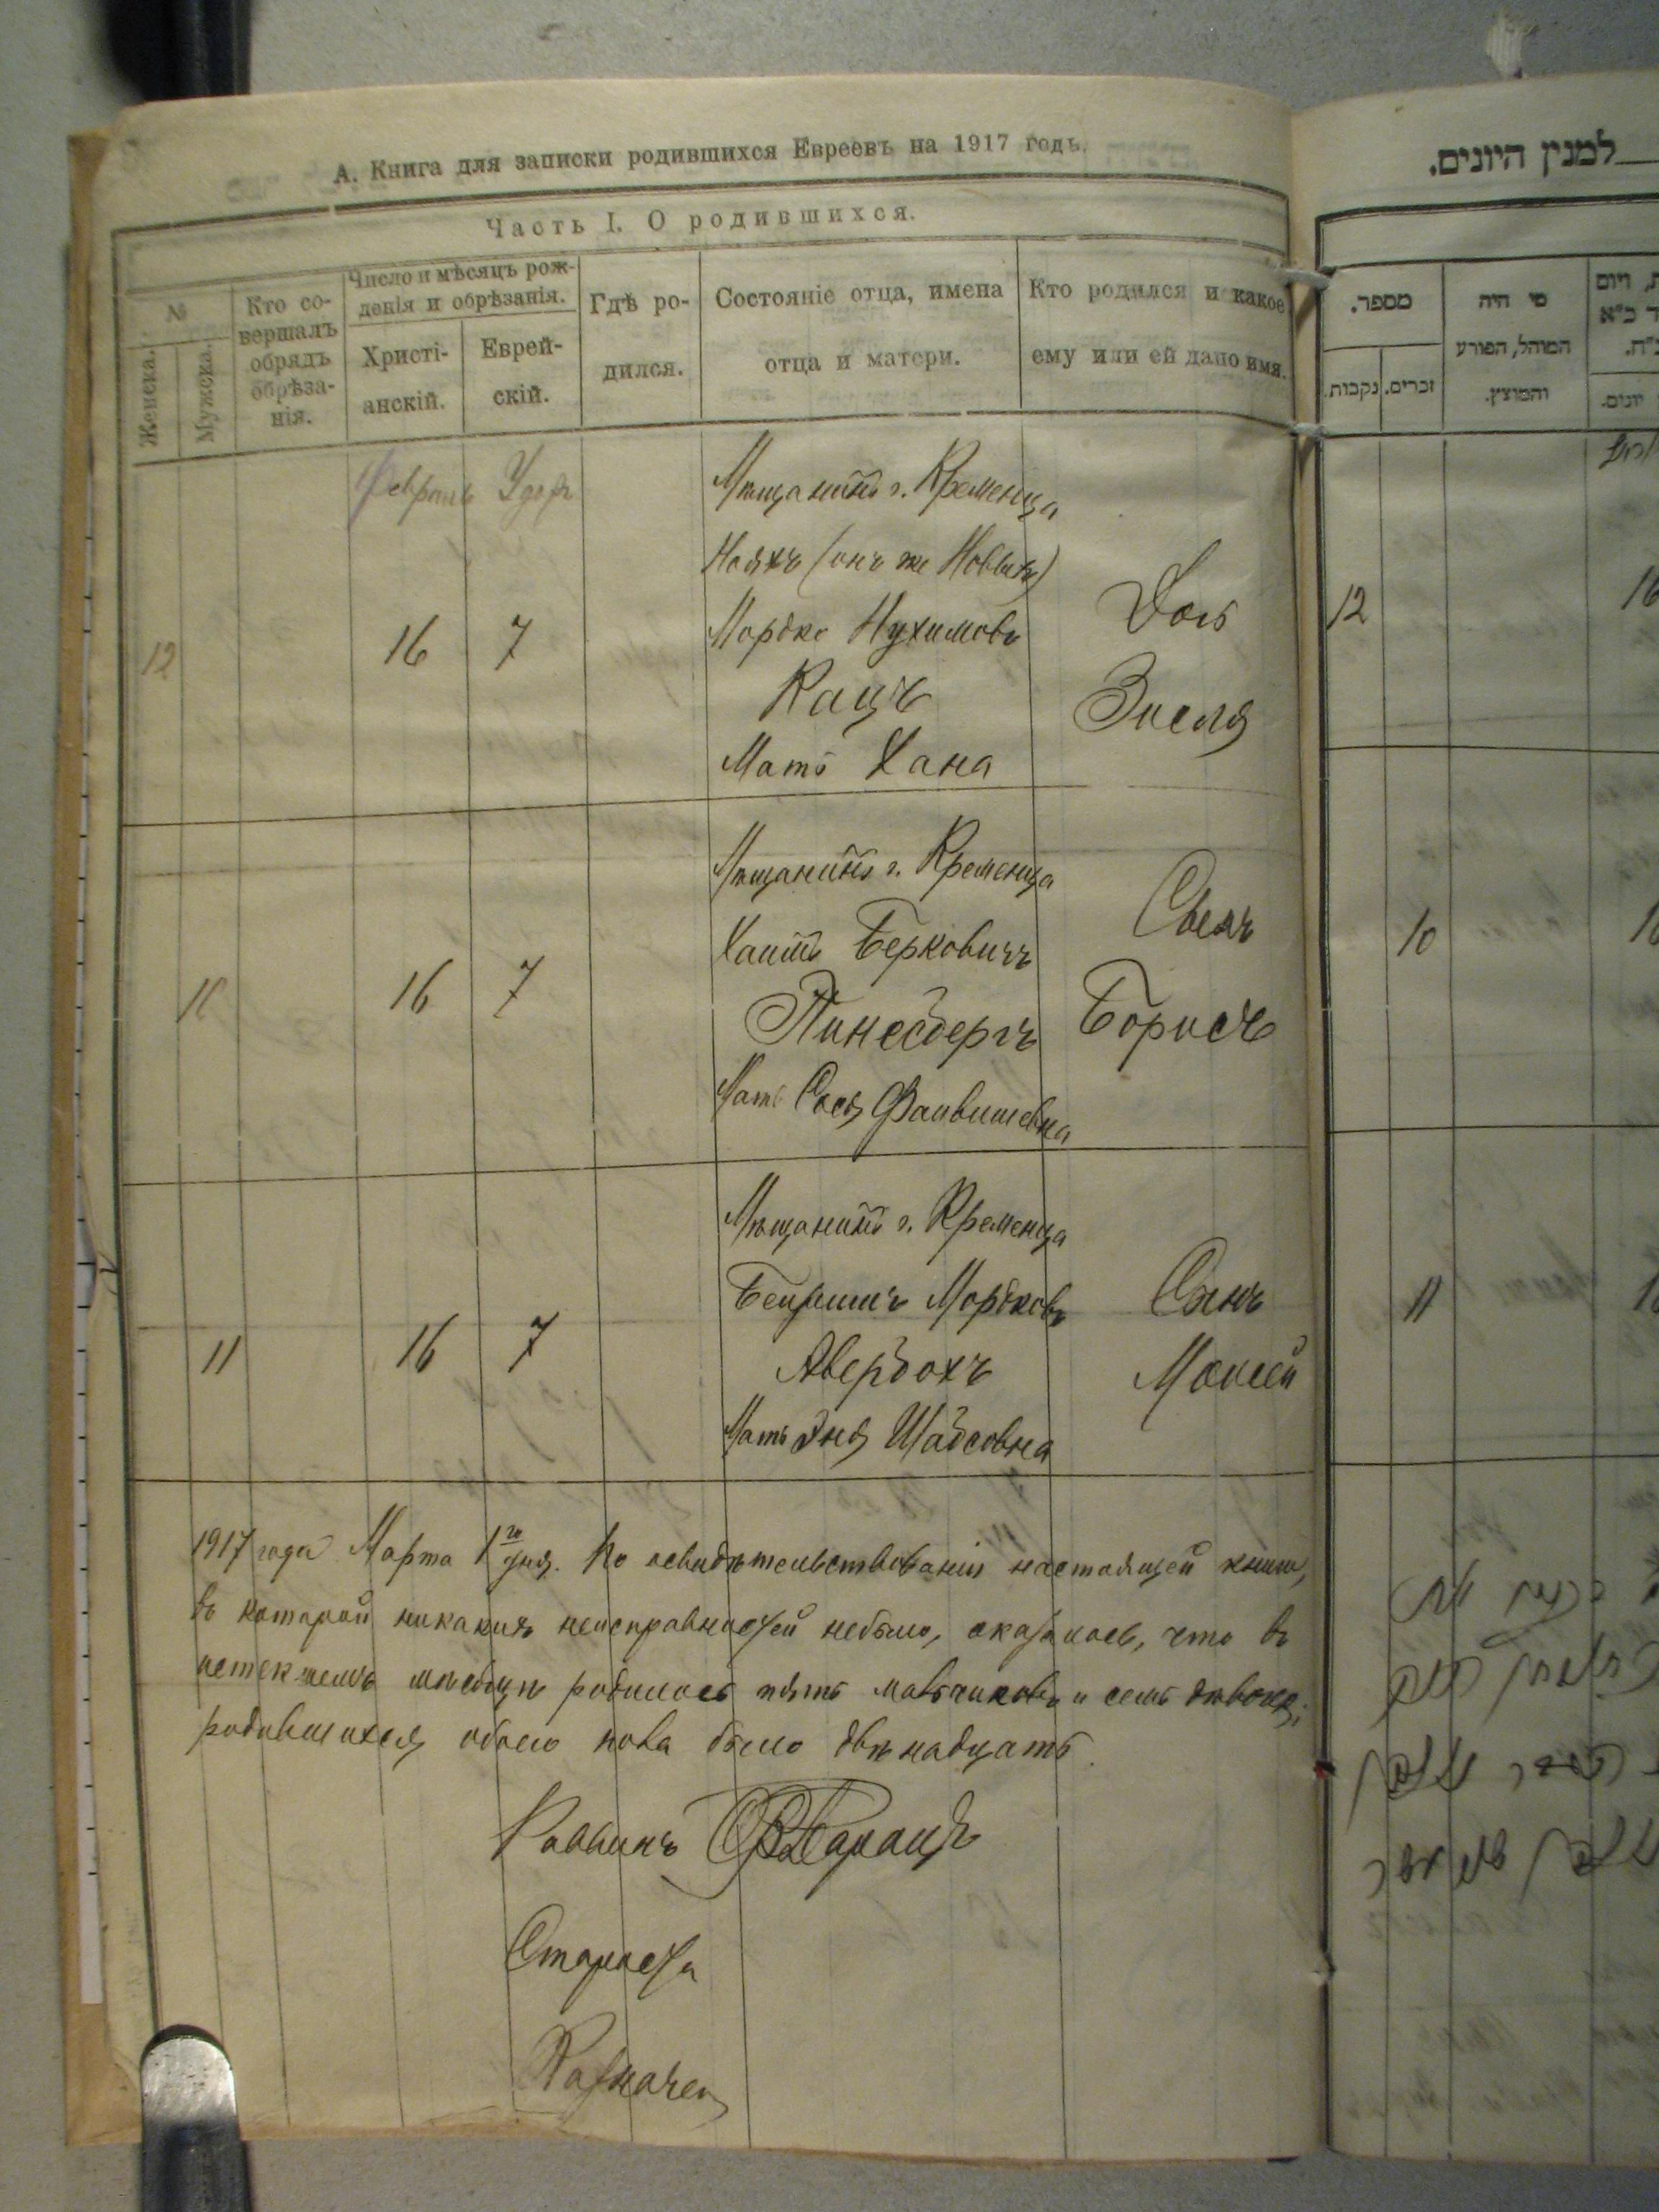 А. Книга для записки родившихся Евреевъ на 1917 годъ.
Часть I. О родившихся.
№
Женска.
Мужска.
Кто со-
вершалъ
обрядъ
обрѣза-
нія.
Число и мѣсяцъ рож-
денія и обрѣзанія.
Христі-
анскій.
Еврей-
скій.
Гдѣ ро-
дился.
Состояніе отца, имена
отца и матери.
Кто родился и какое
ему или ей дано имя.
Февраль Удоръ
12 16 7
Мѣщанинъ г. Кременца
Нояхъ (онъ же Новыхъ)
Мордко Нухимовъ
Кацъ
Мать Хана
Дочь
Зисля
10 16 7
Мѣщанинъ г. Кременца
Хаимъ Берковичъ
Пинесбергъ
Мать Сося Файвишевна
Сынъ
Борисъ
11 16 7
Мѣщанинъ г. Кременца
Беньюминъ Мордковъ
Авербохъ
Мать Эня Шабсовна
Сынъ
Моисей
1917 года Марта 1го дня. По освидѣтельствованіи настоящей книги,
въ которой никакихъ неисправностей небыло, оказалось, что въ
истекшемъ мѣсяцѣ родилось пять мальчиковъ и семь дѣвочекъ;
родившихся обоего пола было двѣнадцать.
Раввинъ
Староста
Казначей
למנין היונים.
מספר.
נקבות.
זכרים.
מי היה
המוהל, הפורע
והמוצץ.
יונים.
12
10
11